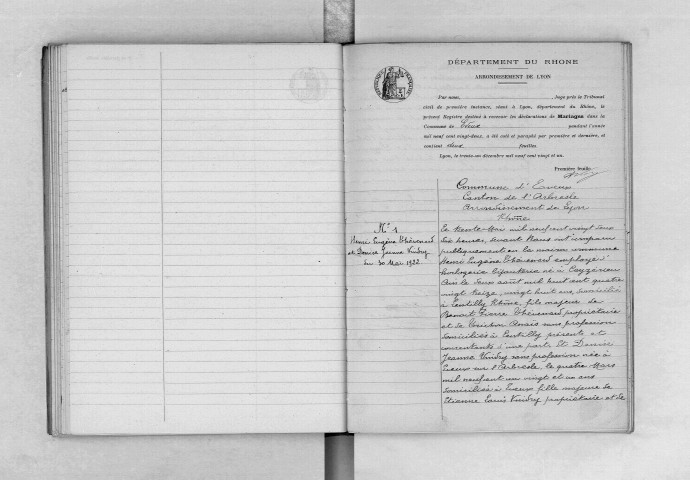 DÉPARTEMENT DU RHONE
ARRONDISSEMENT DE LYON
Par nous, Juge près le Tribunal
civil de première instance, séant à Lyon, département du Rhône, le
présent Registre destiné à recevoir les déclarations de Mariages dans la
Commune de Eveux pendant l'année
mil neuf cent vingt-deux, a été coté et paraphé par première et dernière, et
contient deux feuilles
Lyon, le trente-un décembre mil neuf cent vingt et un.
Première feuille
Commune d'Eveux
Canton de l'Arbresle
Arrondissement de Lyon
Rhône
N° 1
Henri Eugène Thévenard
et Denise Jeanne Vindry
du 30 Mai 1922
Le trente Mai mil neuf cent vingt deux
dix heures, devant Nous ont comparu
publiquement en la maison commune
Henri Eugène Thévenard employé d'
horlogerie bijouterie né à Ceyzériau
Ain le deux août mil huit cent quatre
vingt treize, vingt huit ans, domicilié
à Lentilly Rhône, fils majeur de
Benoit Pierre Thévenard propriétaire
et de Anaïs sans profession
domiciliés à Lentilly présents et
consentants d'une part. Et Denise
Jeanne Vindry sans profession née à
Eveux sur l'Arbresle, le quatre Mars
mil neuf cent un vingt et un ans
domiciliée à Eveux fille majeure de
Etienne Louis Vindry propriétaire et de